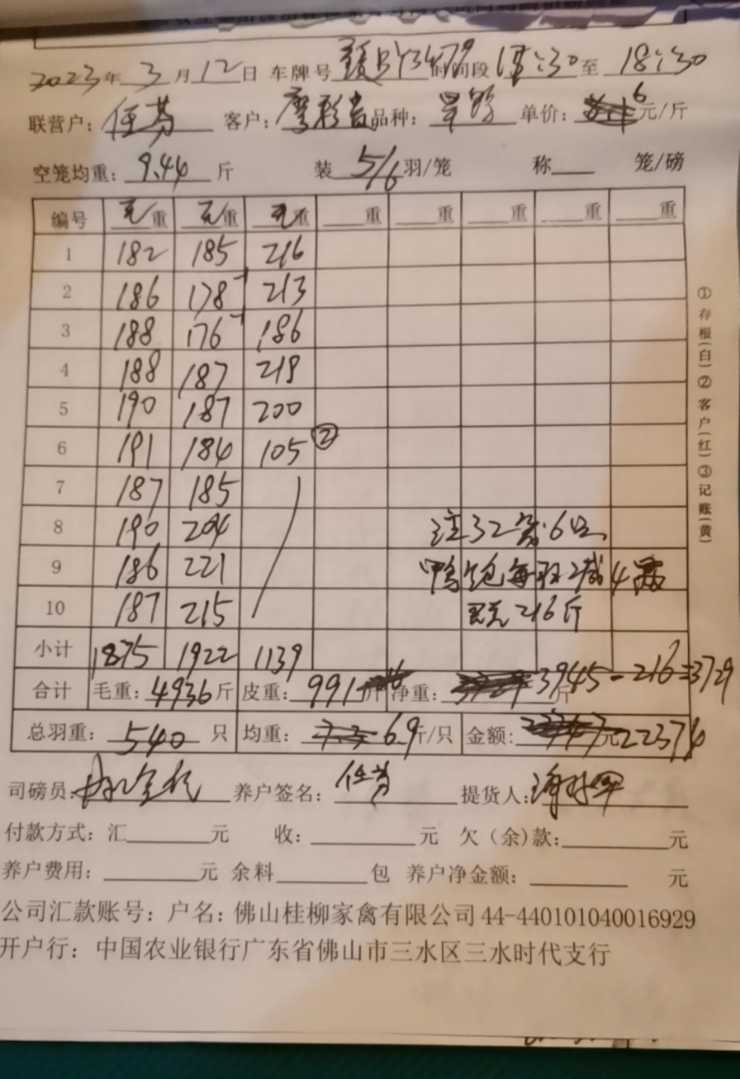 2023年3月12日 车牌号 时间段 :30至18:30
联营户：任芬 客户： 品种： 单价：6元/斤
空笼均重：9.44斤 装5/6羽/笼 称 笼/磅
编号 毛重 毛重 毛重 重 重 重 重 重
1 182 185 216
2 186 178 213
3 188 176 186
4 188 187 219
5 190 187 200
6 191 184 105②
7 187 185
8 190 204 注32笼6只
9 186 221 鸭 每羽减4两
10 187 215 216斤
小计 1875 1922 1139
合计 毛重：4936斤 皮重：991斤 净重：3945-216=3729斤
总羽重：540只 均重：6.9斤/只 金额：22374元
司磅员： 养户签名：任芬 提货人：
付款方式：汇 元 收： 元 欠（余）款： 元
养户费用： 元 余料 包 养户净金额： 元
公司汇款账号：户名：佛山桂柳家禽有限公司44-440101040016929
开户行：中国农业银行广东省佛山市三水区三水时代支行
①存根(白)②客户(红)③记账(黄)